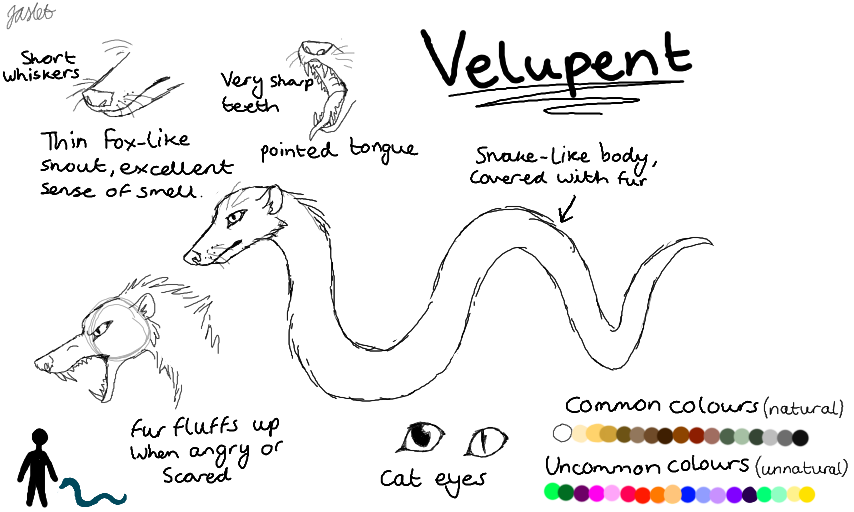 Jaslet
Velupent
Short
whiskers
Very sharp
teeth
Thin fox-like
snout, excellent
sense of smell.
pointed tongue
Snake-like body,
covered with fur
fur fluffs up
when angry or
scared
Cat eyes
Common colours (natural)
Uncommon colours (unnatural)